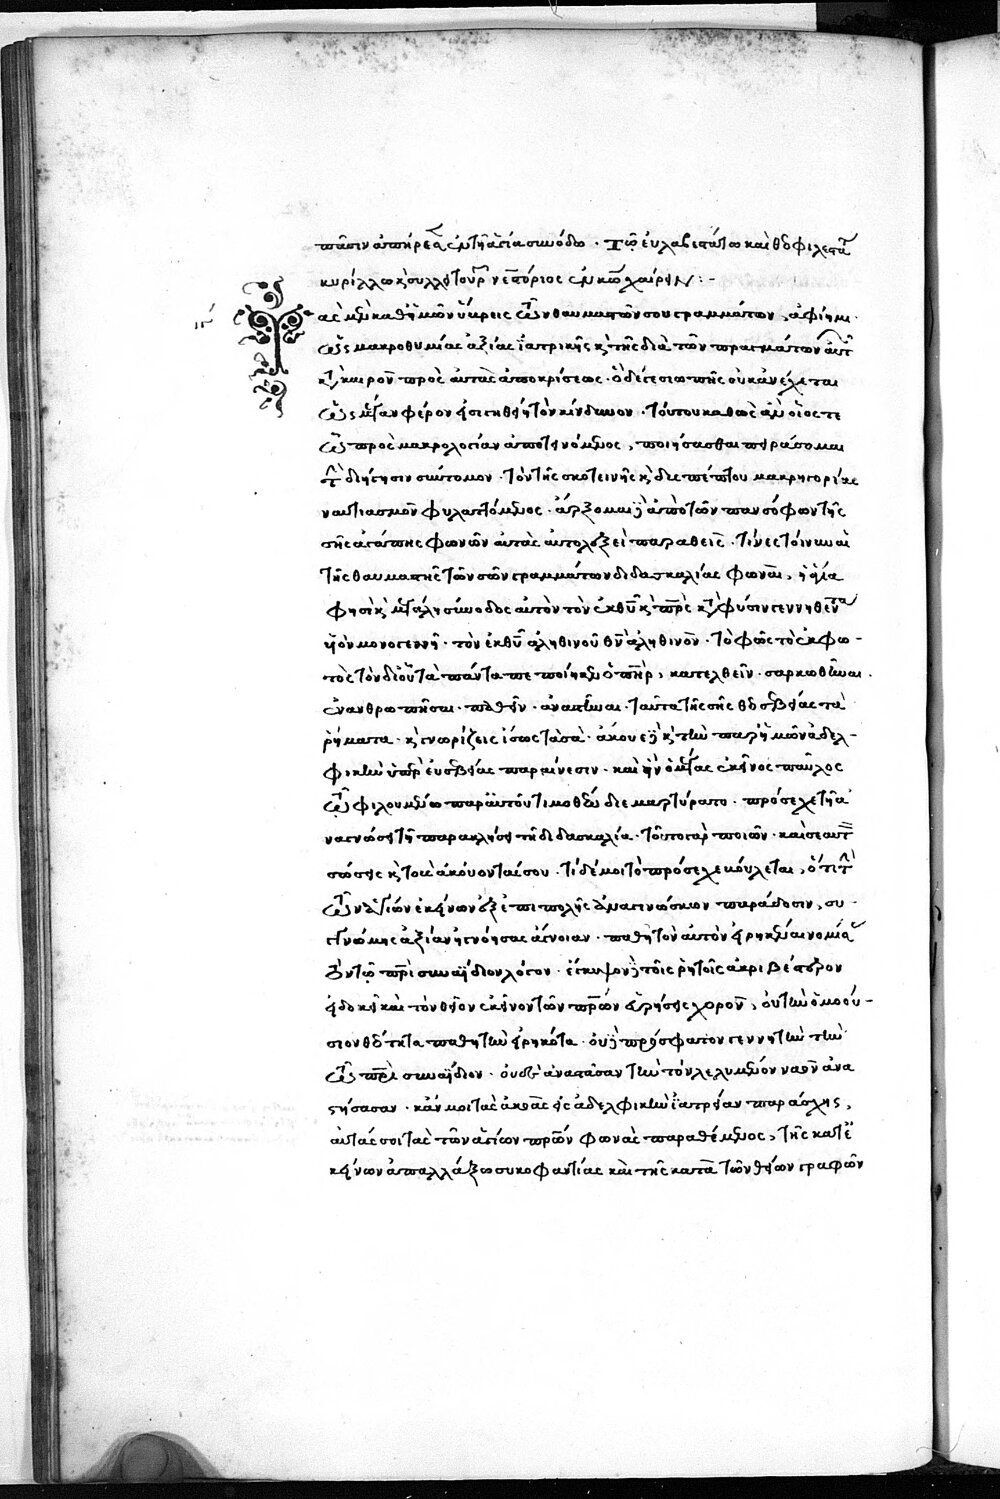 πᾶσιν ἀπήρεσεν τῇ ἁγίᾳ συνόδῳ · Τῷ εὐλαβεστάτῳ καὶ θεοφιλεστάτῳ
κυρίλλῳ καὶ συλλειτουργῷ νεστόριος ἐν κυρίῳ χαίρειν : -
Τὰς μὲν καθ' ἡμῶν ὕβρεις τῶν θαυμαστῶν σου γραμμάτων, ἀφίημι ·
ὡς μακροθυμίας ἀξίας ἰατρικῆς καὶ τῆς διὰ τῶν πραγμάτων αὐτῇ
κατὰ καιρὸν πρὸς αὐτὰς ἀποκρίσεως · ὃ δέ γε σιωπῆς οὐκ ἀνέχεται
ὡς μέγαν φέρον εἰ σιγηθείη τὸν κίνδυνον · τούτου καθὼς ἂν οἷός τε
ὦ πρὸς μακρολογίαν ἀποτεινόμενος, ποιήσασθαι πειράσομαι
τὴν διήγησιν σύντομον · τὸν τῆς σκοτεινῆς καὶ δυσπέπτου μακρηγορίας
ναυτιασμὸν φυλαττόμενος · ἄρξομαι δὲ ἀπὸ τῶν πανσόφων τῆς
σῆς ἀγάπης φωνῶν αὐτὰς αὐτολεξεὶ παραθείς · τίνες τοίνυν αἱ
τῆς θαυμαστῆς τῶν σῶν γραμμάτων διδασκαλίας φωναί, ἡ ἁγία
φησὶ καὶ μεγάλη σύνοδος αὐτὸν τὸν ἐκ θεοῦ καὶ πατρὸς κατὰ φύσιν γεννηθέντα
υἱὸν μονογενῆ · τὸν ἐκ θεοῦ ἀληθινοῦ θεὸν ἀληθινόν · τὸ φῶς τὸ ἐκ φω-
τὸς τὸν δι' οὗ τὰ πάντα πεποίηκεν ὁ πατὴρ, κατελθεῖν · σαρκωθῆναι ·
ἐνανθρωπῆσαι · παθεῖν · ἀναστῆναι · ταῦτα τῆς σῆς θεοσεβείας τὰ
ῥήματα · καὶ γνωρίζεις ἴσως τὰ σά · ἄκουε δὲ καὶ τὴν παρ' ἡμῶν ἀδελ-
φικὴν ὑπὲρ εὐσεβείας παραίνεσιν · καὶ ἣν ὁ μέγας ἐκεῖνος παῦλος
τῷ φιλουμένῳ παρ' αὐτοῦ τιμοθέῳ διεμαρτύρατο · πρόσεχε τῇ ἀ
ναγνώσει τῇ παρακλήσει τῇ διδασκαλίᾳ · τοῦτο γὰρ ποιῶν · καὶ σεαυτὸν
σώσεις καὶ τοὺς ἀκούοντάς σου · τί δέ μοι τὸ πρόσεχε βούλεται, ὅτι τὴν
τῶν ἁγίων ἐκείνων ἐξ ἐπιπολῆς ἀναγινώσκων παράδοσιν, συ-
γγνώμης ἀξίαν ἠγνόησας ἄγνοιαν · παθητὸν αὐτὸν εἰρηκέναι νομίσας
τὸν τῷ πατρὶ συναΐδιον λόγον · ἔγκυψον δὲ τοῖς ῥητοῖς ἀκριβέστερον
εἰ δοκεῖ καὶ τὸν θεῖον ἐκεῖνον τῶν πατέρων εὑρήσεις χορὸν, οὐ τὴν ὁμοού-
σιον θεότητα παθητὴν εἰρηκότα · οὐδὲ πρόσφατον γεννητὴν τὴν
τῷ πατρὶ συναΐδιον · οὐδὲ ἀναστᾶσαν τὴν τὸν λελυμένον ναὸν ἀνα
στήσασαν · κἄν μοι τὰς ἀκοὰς εἰς ἀδελφικὴν ἰατρείαν παράσχῃς,
αὐτάς σοι τὰς τῶν ἁγίων πατέρων φωνὰς παραθέμενος, τῆς κατ' ἐ
κείνων ἀπαλλάξω συκοφαντίας καὶ τῆς κατὰ τῶν θείων γραφῶν